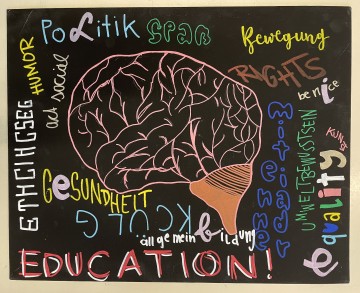 PoLitik
Bewegung
HUMOR
act social
RIGHTS
be nice
ETHCIHCSEG
Miteinander
UMWELTBEWUSSTSEIN
KUNST
equality
GeSUNDHEIT
KCÜLG
allgemeinbildung
EDUCATION!